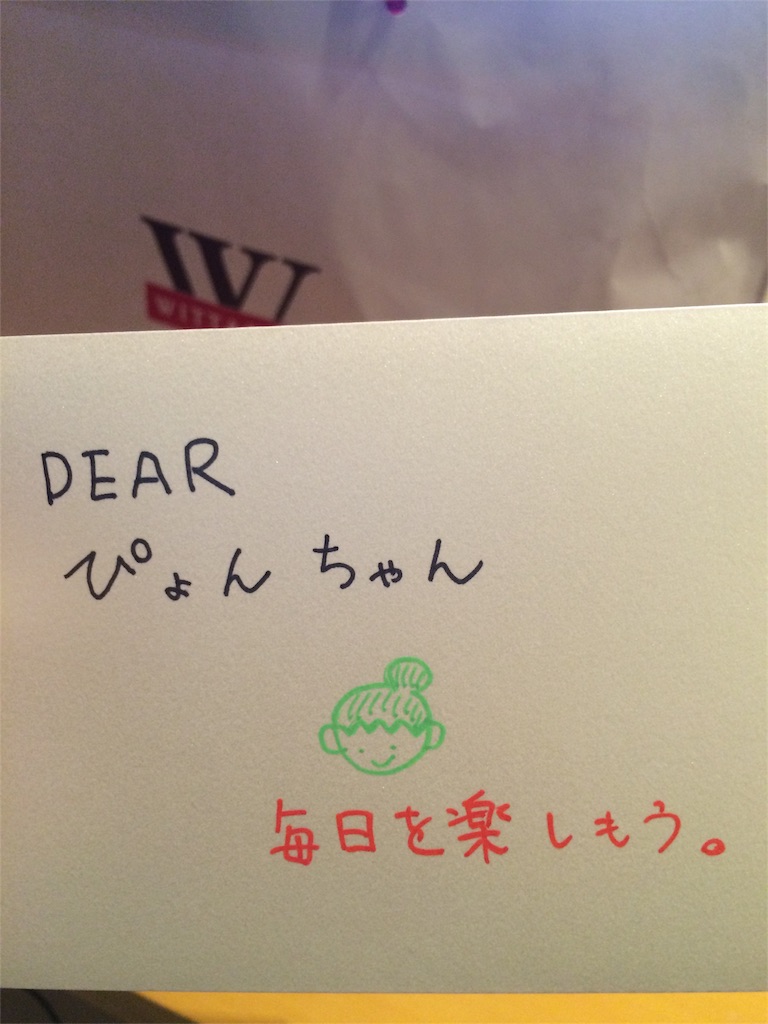 W
DEAR
ぴょんちゃん
毎日を楽しもう。